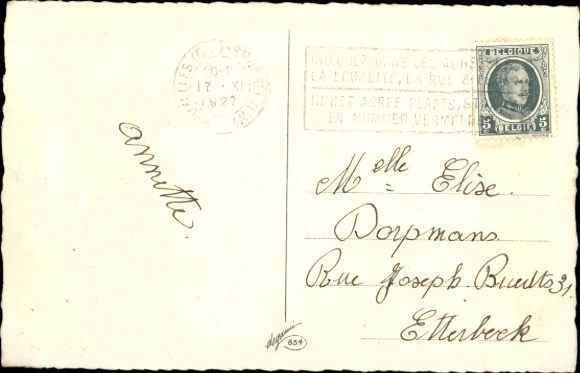 20-2
17 · XI
1927
INDIQUEZ DANS LES ADRE
LA LOCALITÉ, LA RUE &
IN HET ADRES PLAATS, ST
EN NUMMER VERMELD
BELGIQUE
5 5
BELGIE
annette.
Melle Elise.
Dorpmans.
Rue Joseph Buedts 31.
Etterbeek
854